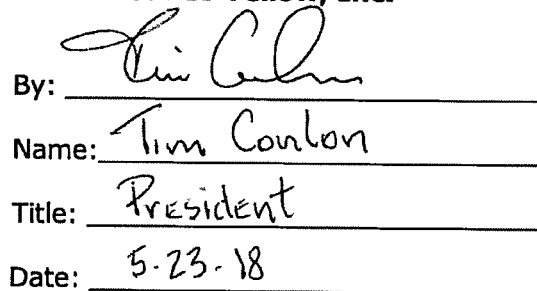 By:
Name: Tim Conlon
Title: President
Date: 5.23.18